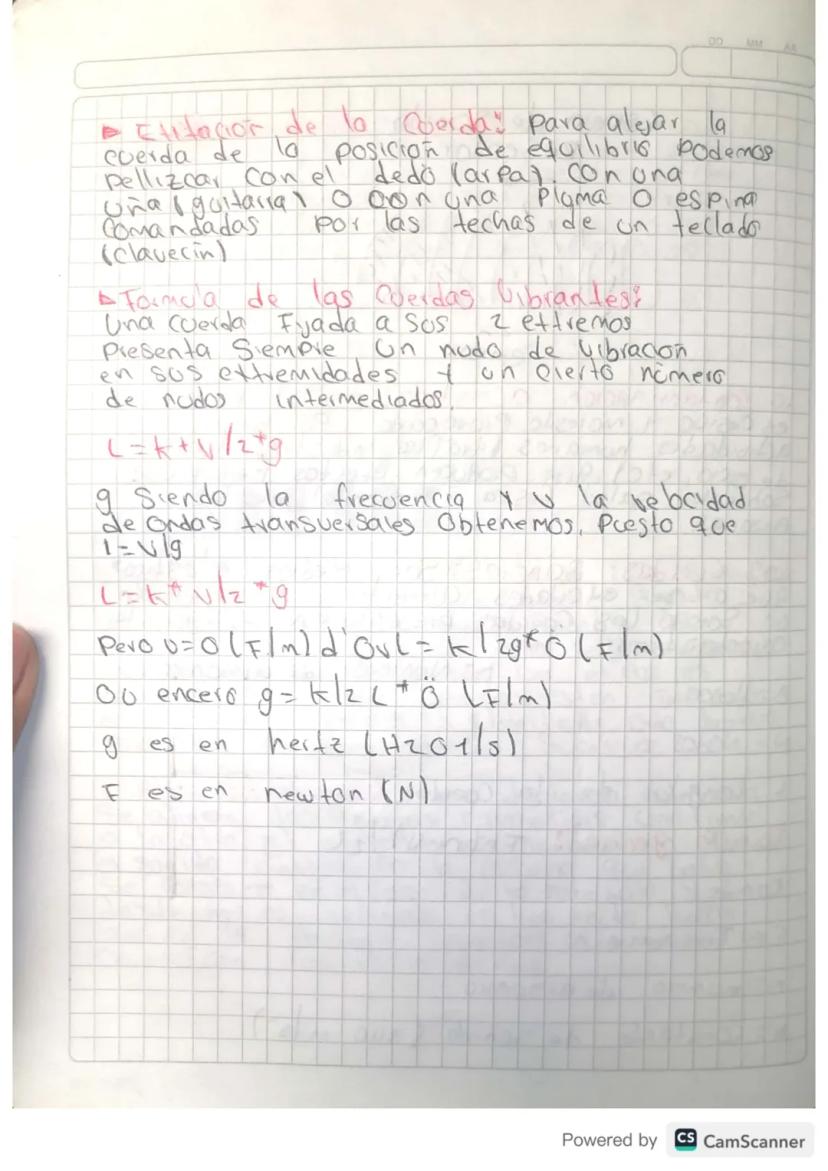 DD MM AA
▷ Exitacion de la Cuerda: para alejar la
cuerda de la posición de equilibrio podemos
pellizcar con el dedo (arpa). Con una
uña (guitarra) o con una pluma o espina
comandadas por las techas de un teclado
(clavecin)
▷ Formula de las Cuerdas Vibrantes:
Una cuerda Fijada a sus 2 extremos
Presenta Siempre un nudo de vibracion
en sus extremidades y un cierto número
de nudos intermediados.
L = k + V/2*g
g Siendo la frecuencia y v la velocidad
de ondas transversales obtenemos, puesto que
l = V/g
L = k* V/2 *g
Pero v=O(F/m) d'Ou L = k/2g* O (F/m)
Ou encero g = k/2 L * Ö (F/m)
g es en hertz (Hz o 1/s)
F es en newton (N)
Powered by CS CamScanner